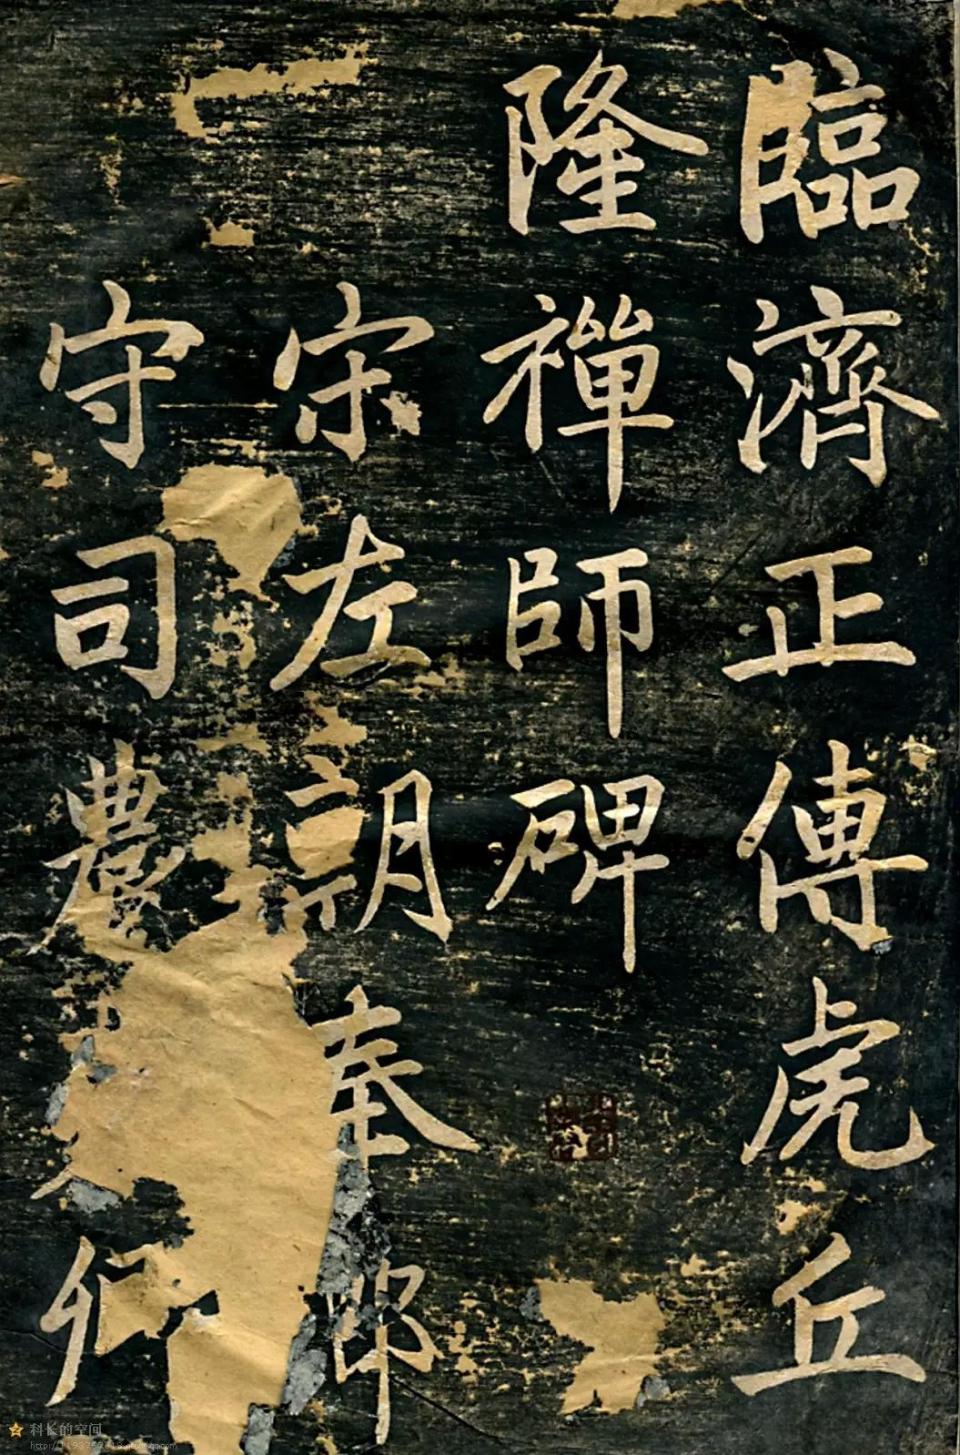 臨濟正傳虎丘
隆禪師碑
宋左朝奉郎
守司農
科长的空间